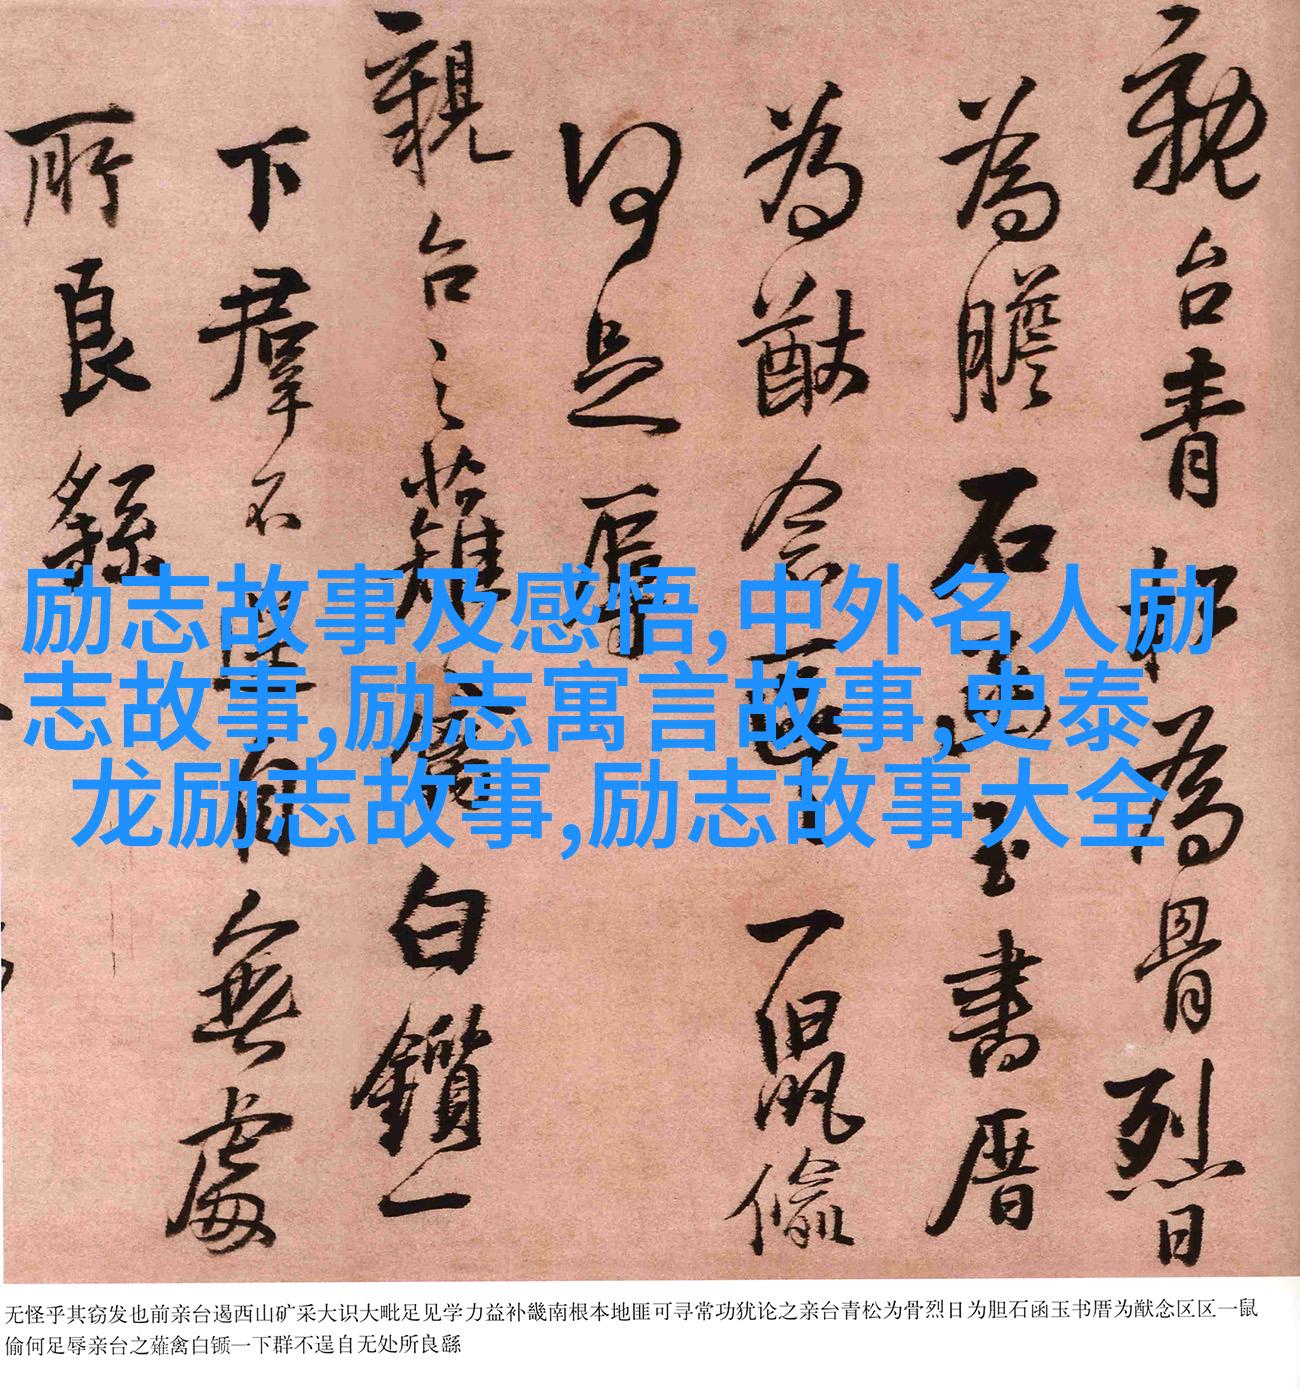 親台青松為骨烈日
為膽石函玉書厝
為猷念區區一鼠偷
何足辱
親台之薙禽白鑕一
下羣不逞自無處
所良繇
励志故事及感悟,中外名人励
志故事,励志寓言故事,史泰
龙励志故事,励志故事大全
无怪乎其窃发也前亲台遏西山矿采大识大毗足见学力益补畿南根本地匪可寻常功犹论之亲台青松为骨烈日为胆石函玉书厝为猷念区区一鼠
偷何足辱亲台之薙禽白锧一下群不逞自无处所良繇